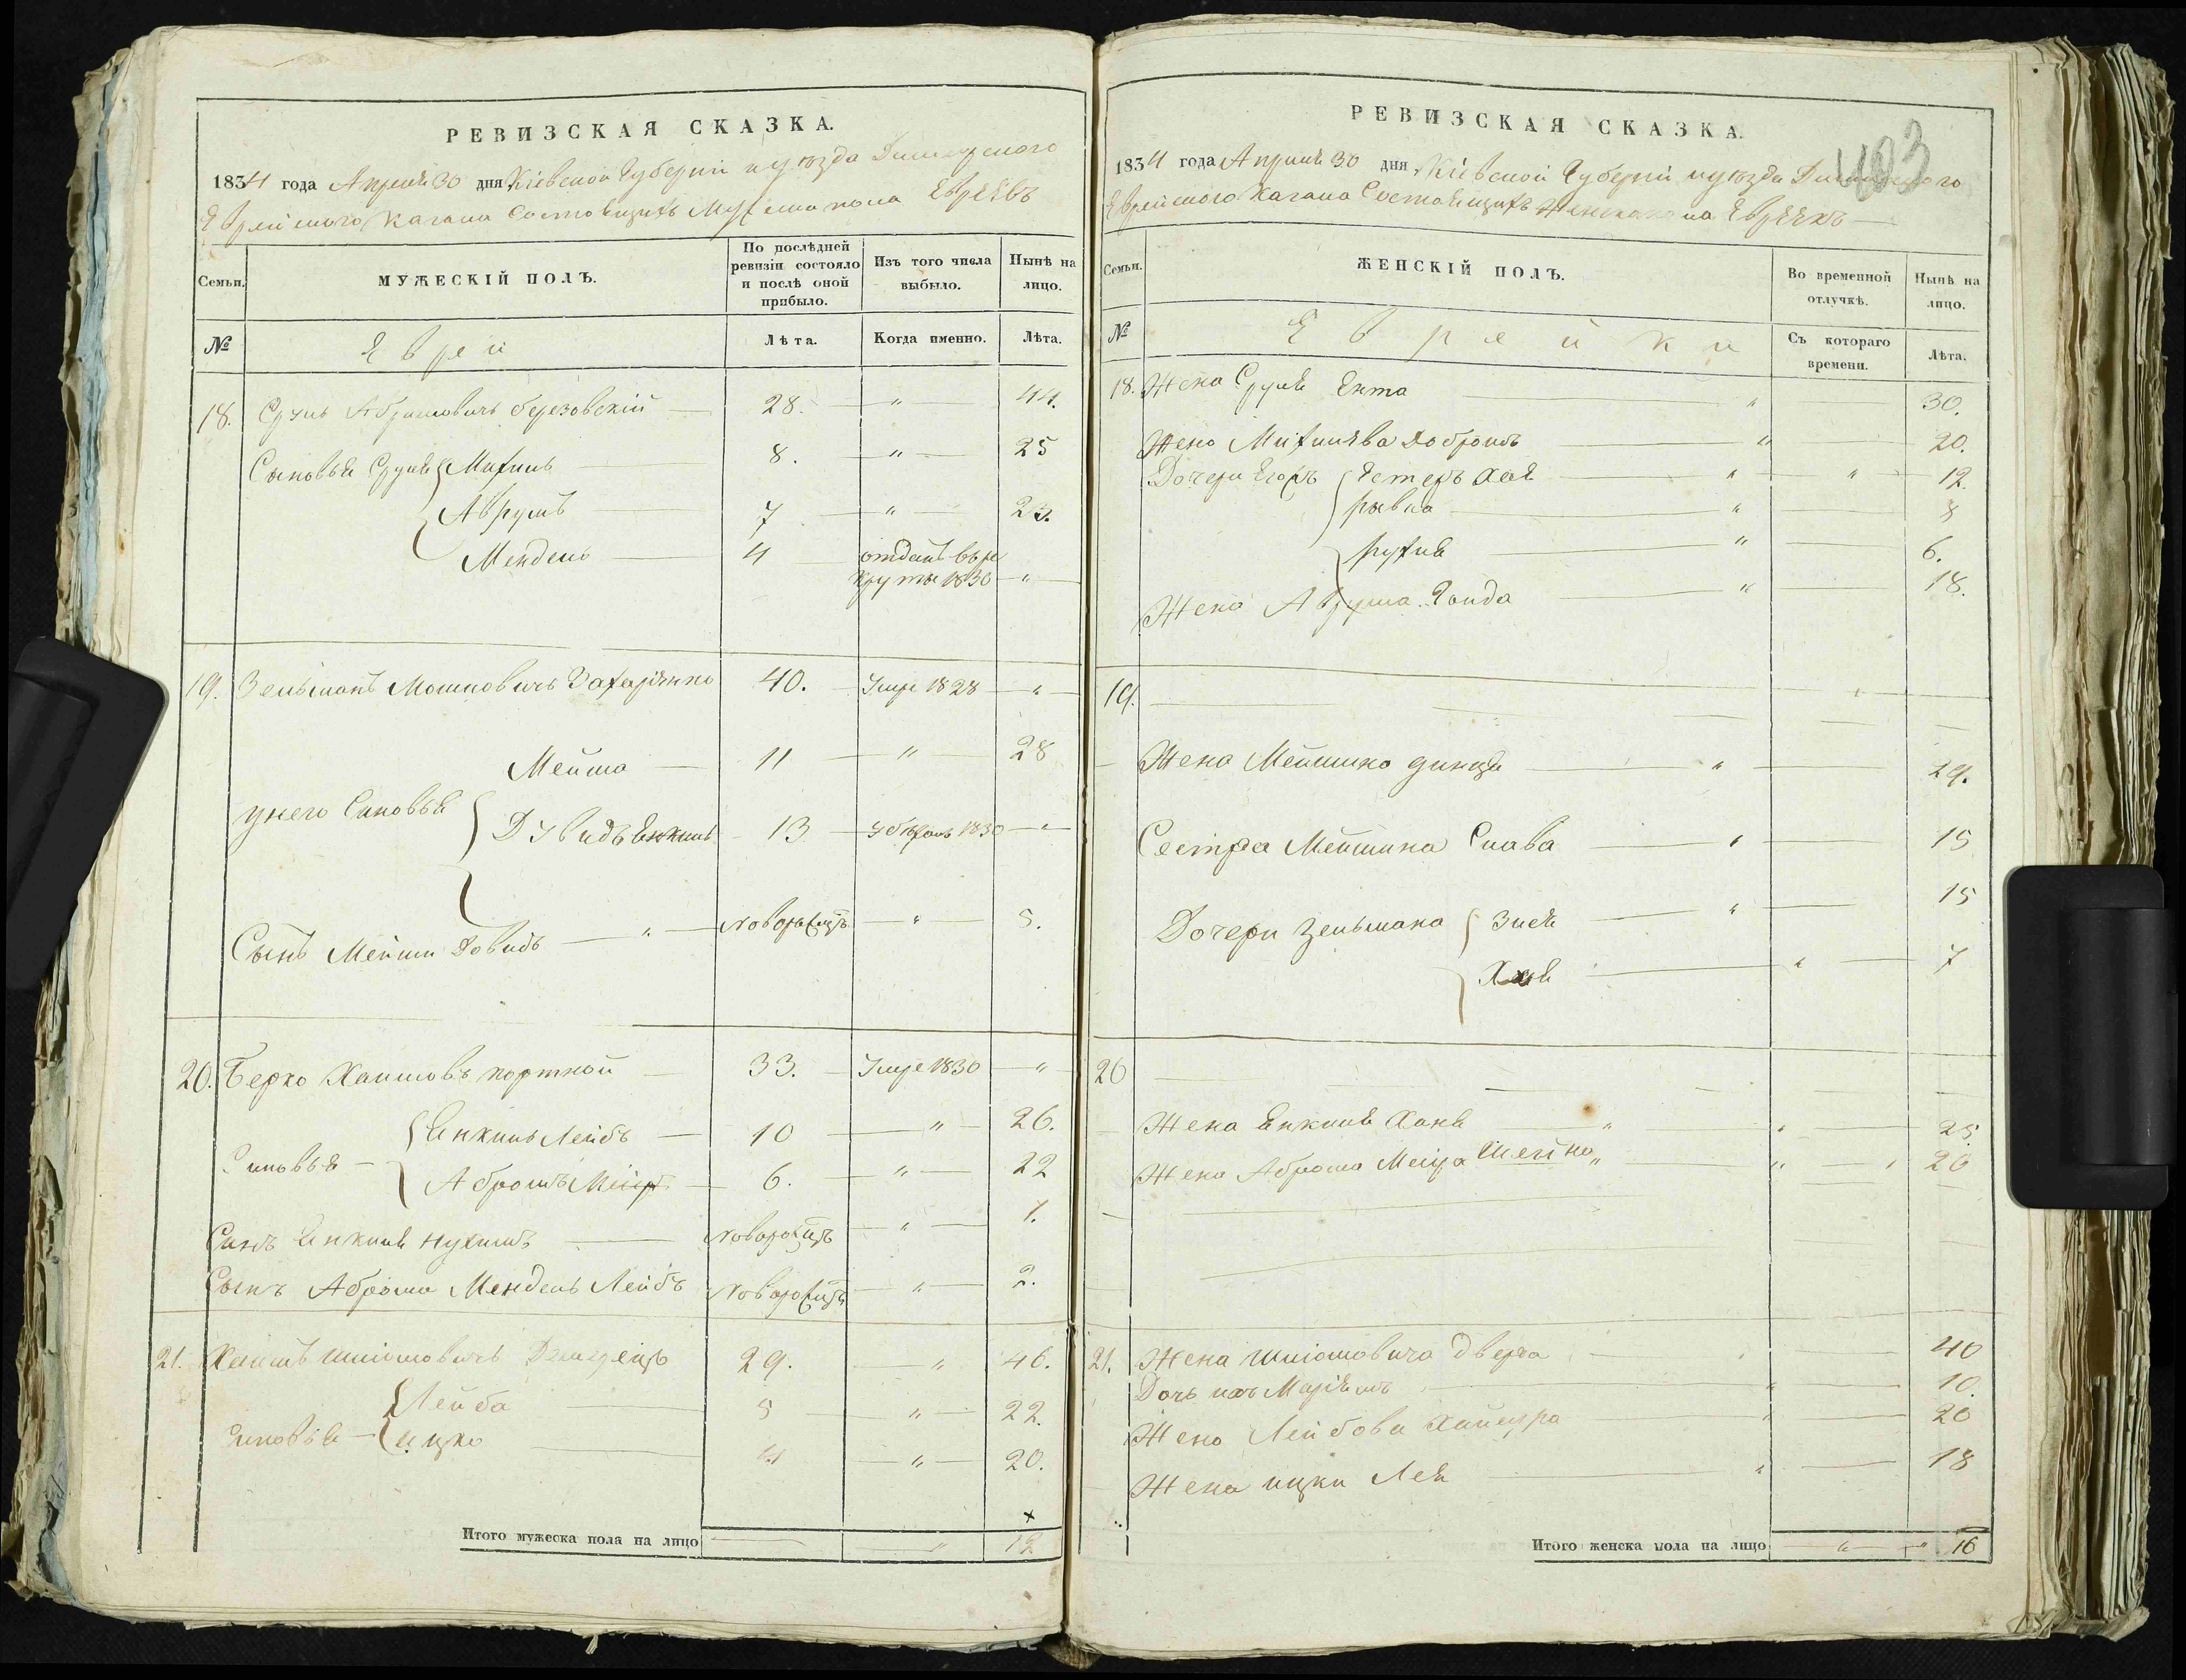 РЕВИЗСКАЯ СКАЗКА.
1834 года Апреля 30 дня Кіевской Губерніи и уѣзда Дымерского
Еврейского Кагала Состоящихъ Мужеска пола Евреѣвъ
Семьи.
МУЖЕСКІЙ ПОЛЪ.
По послѣдней ревизіи состояло и послѣ оной прибыло.
Изъ того числа выбыло.
Нынѣ на лицо.
№
Евреи
Лѣта.
Когда именно.
Лѣта.
18. Сруль Абрамовичъ березовскій 28. " 44.
Сыновья Сруля Михель 8. " 25
Аврумъ 7 " 23.
Мендель 4 отданъ въ ре
круты 1830 "
19. Зельманъ Мошковичъ 40. Умре 1828 "
Мейша 11 " 28
у него Сыновья
Дувидъ Янкель 13 1830 "
Сынъ Мейши Довидъ " Новорожден " 5.
20. Берко Хаимовъ портной 33. Умре 1830 "
Янкель Лейбъ 10 " 26.
Сыновья
Абрамъ Меиеръ 6. " 22
Сынъ Янкеля Нухимъ " 1.
Сынъ Абрама Мендель Лейбъ " 2.
21. Хаимъ Шліомовичъ 29. " 46.
Лейба 5 " 22.
Сыновья
Ицко 4 " 20.
х
Итого мужеска пола на лицо " 12
РЕВИЗСКАЯ СКАЗКА.
403
1834 года Апреля 30 дня Кіевской Губерніи и уѣзда
Еврейского Кагала Состоящихъ Женска пола Евреѣкъ
Семьи.
ЖЕНСКІЙ ПОЛЪ.
Во временной отлучкѣ.
Нынѣ на лицо.
№
Еврейки
Съ котораго времени.
Лѣта.
18. Жена Сруля Ента " 30.
Жена Михилѣва Добрышъ " 20.
Дочери Егоръ Естеръ Хая " " 12.
рывка " 8
рухля " 6.
Жена Аврума Голда " 18.
19. "
Жена Мейшина " 29.
Сестра Мейшина Слава " 15
Дочери Зельмана Зися " 15
Хая " 7
20
Жена Янкеля Ханя " " 25
Жена Абрама Меира Шейна " " 20
21. Жена Шліомовича Двейра 40
Дочь ихъ Маріямъ " 10.
Жена Лейбова " 20
Жена ицки Лея " 18
Итого женска пола на лицо " " 16